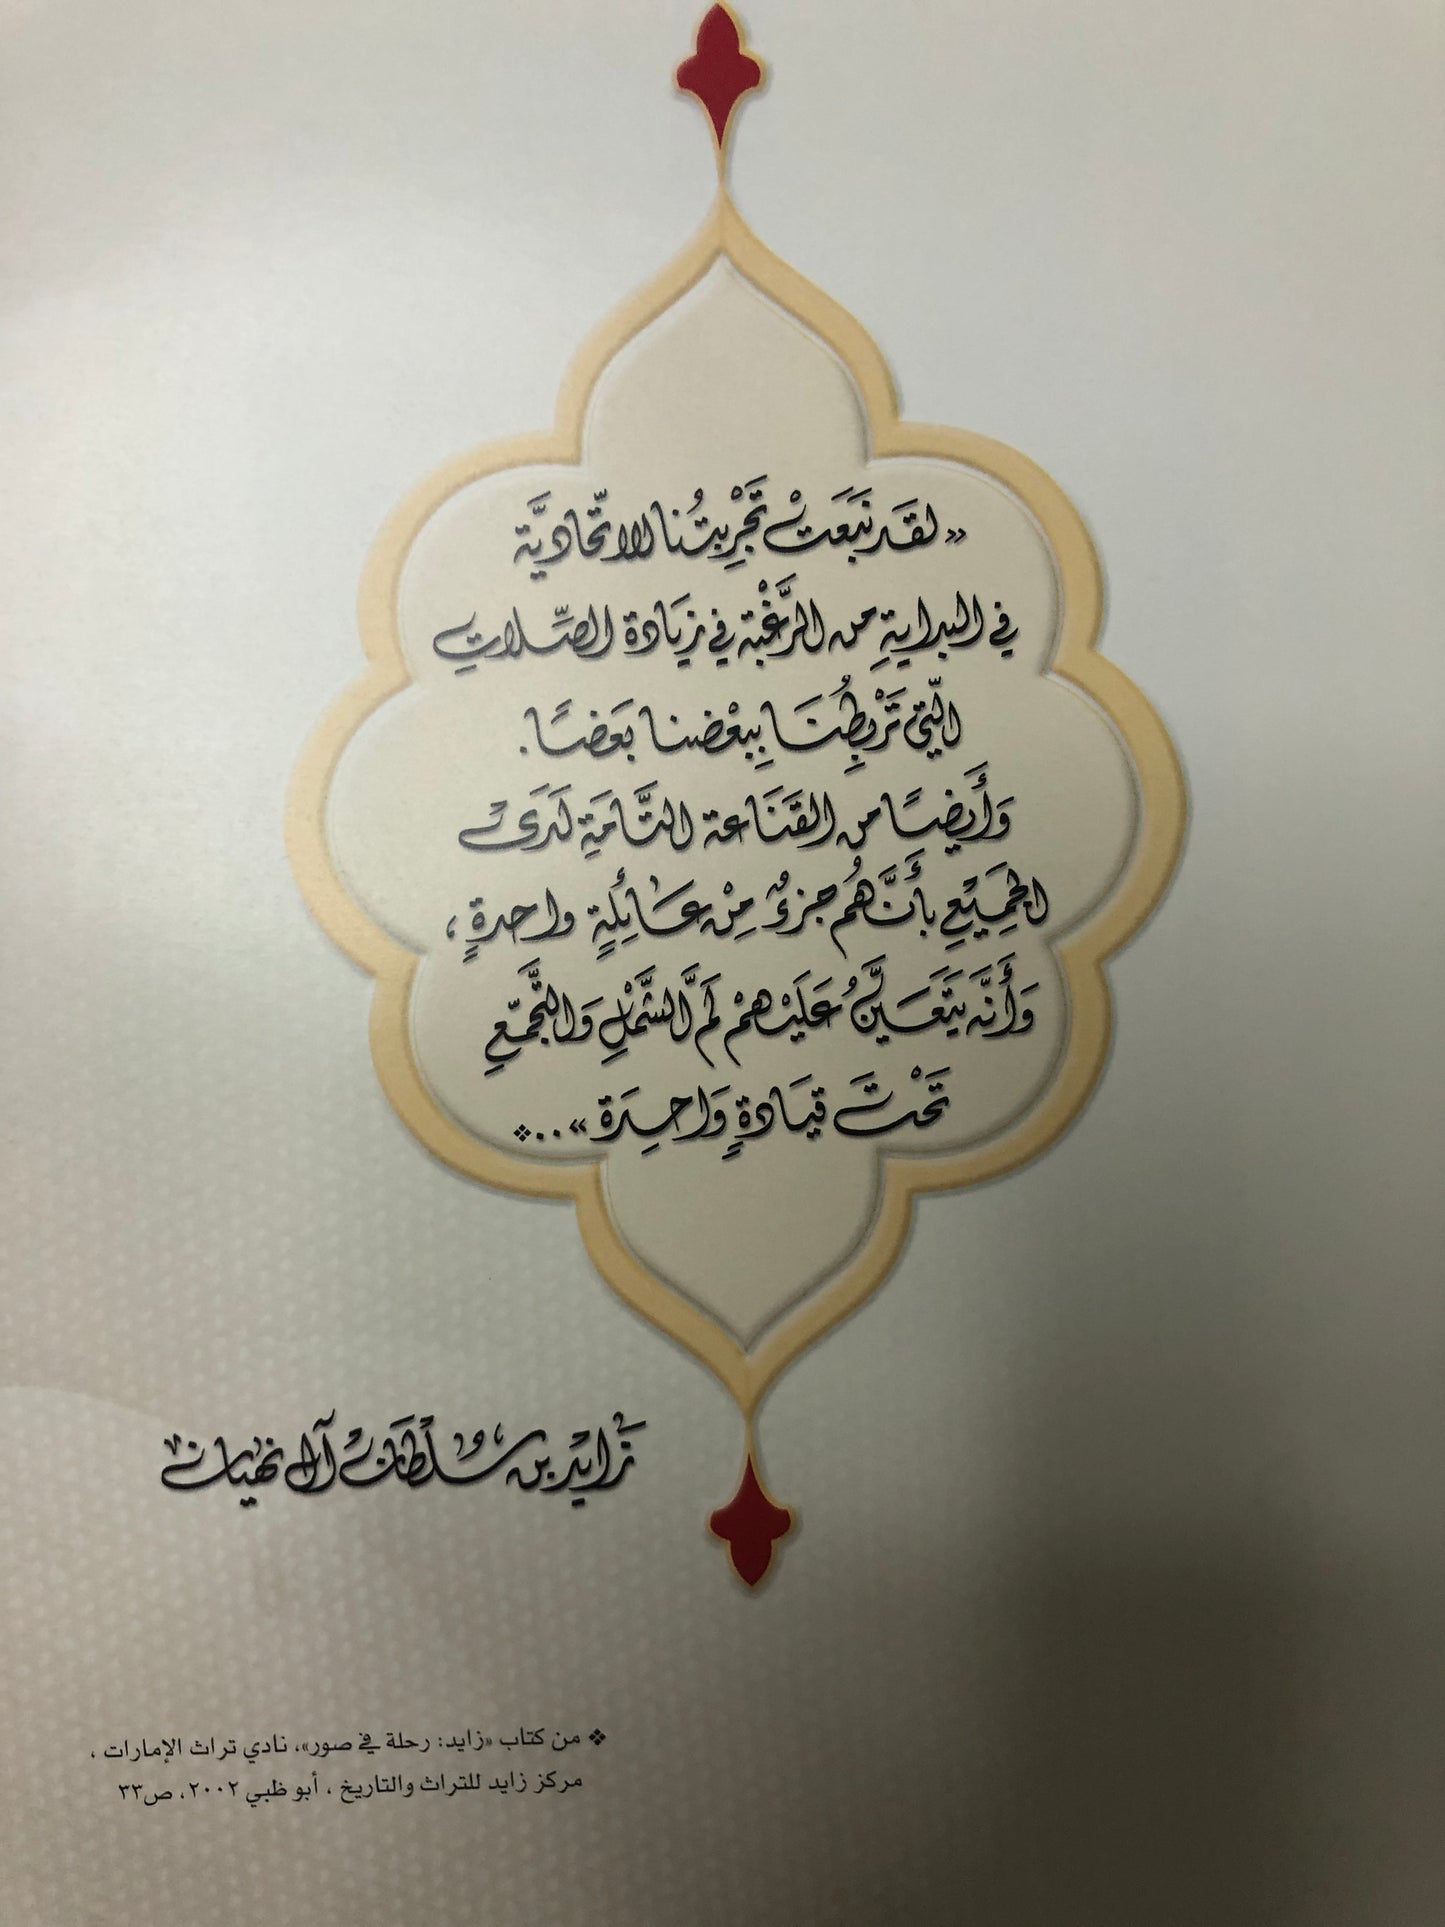 «لقَد نَبَعَتْ تَجْرِبتُنا الاتّحاديَّة
في البدايةِ من الرَّغْبة في زيَادة الصِّلاتِ
الّتي تَرْبِطُنَا بِبعْضنا بَعَضًا.
وَأَيضًا من القَنَاعة التَّامَةِ لَدَىْ
الجَمِيْعِ بأَنَّهُم جزءٌ مِنْ عَائِلةٍ واحدةٍ،
وَأَنَّه يَتَعَيَّنُ عَلَيْهمْ لَمَّ الشَّمْلِ وَالتَّجمّعِ
تَحْتَ قيَادةٍ وَاحِدَة»..❖
زَايْد بن سُلْطَانْ آل نهيان
❖ من كتاب «زايد: رحلة في صور»، نادي تراث الإمارات ،
مركز زايد للتراث والتاريخ ، أبو ظبي ٢٠٠٢، ص٣٣